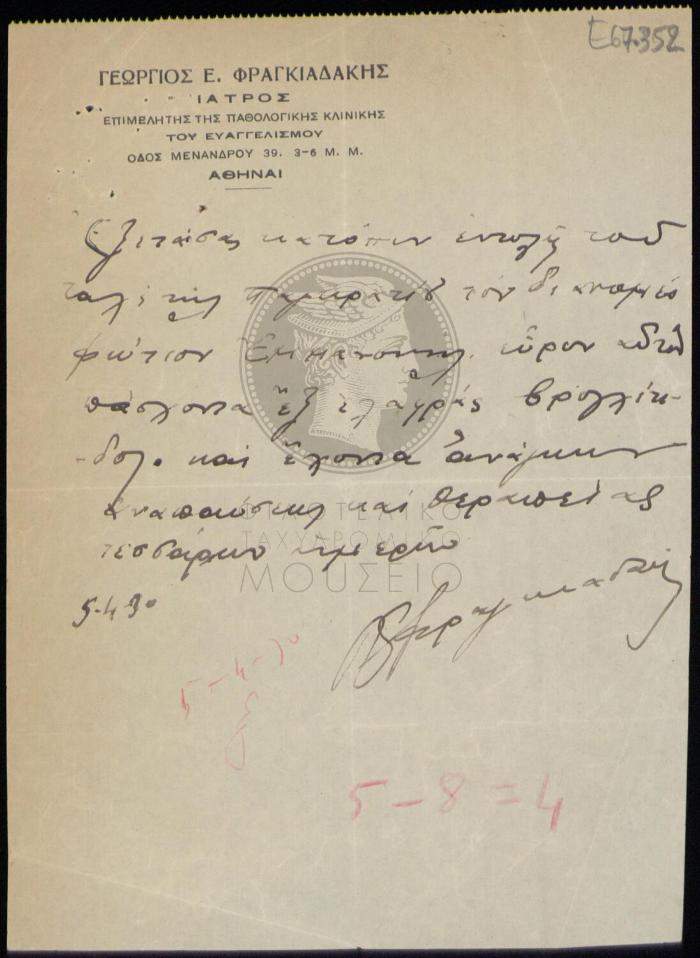 E67.352
ΓΕΩΡΓΙΟΣ Ε. ΦΡΑΓΚΙΑΔΑΚΗΣ
ΙΑΤΡΟΣ
ΕΠΙΜΕΛΗΤΗΣ ΤΗΣ ΠΑΘΟΛΟΓΙΚΗΣ ΚΛΙΝΙΚΗΣ
ΤΟΥ ΕΥΑΓΓΕΛΙΣΜΟΥ
ΟΔΟΣ ΜΕΝΑΝΔΡΟΥ 39. 3-6 Μ. Μ.
ΑΘΗΝΑΙ
Ἐξετάσας κατόπιν ἐντολῆς τοῦ
Παγκρατίου τὸν διανομέα
Φώτιον Ἐμμανουὴλ εὗρον αὐτὸν
πάσχοντα ἐξ ἐλαφρᾶς
καὶ ἔχοντα ἀνάγκην
ἀναπαύσεως καὶ θεραπείας
τεσσάρων ἡμερῶν
ΦΙΛΟΤΕΛΙΚΟ
ΤΑΧΥΔΡΟΜΙΚΟ
ΜΟΥΣΕΙΟ
5-4-30
5-4-30
5-8=4